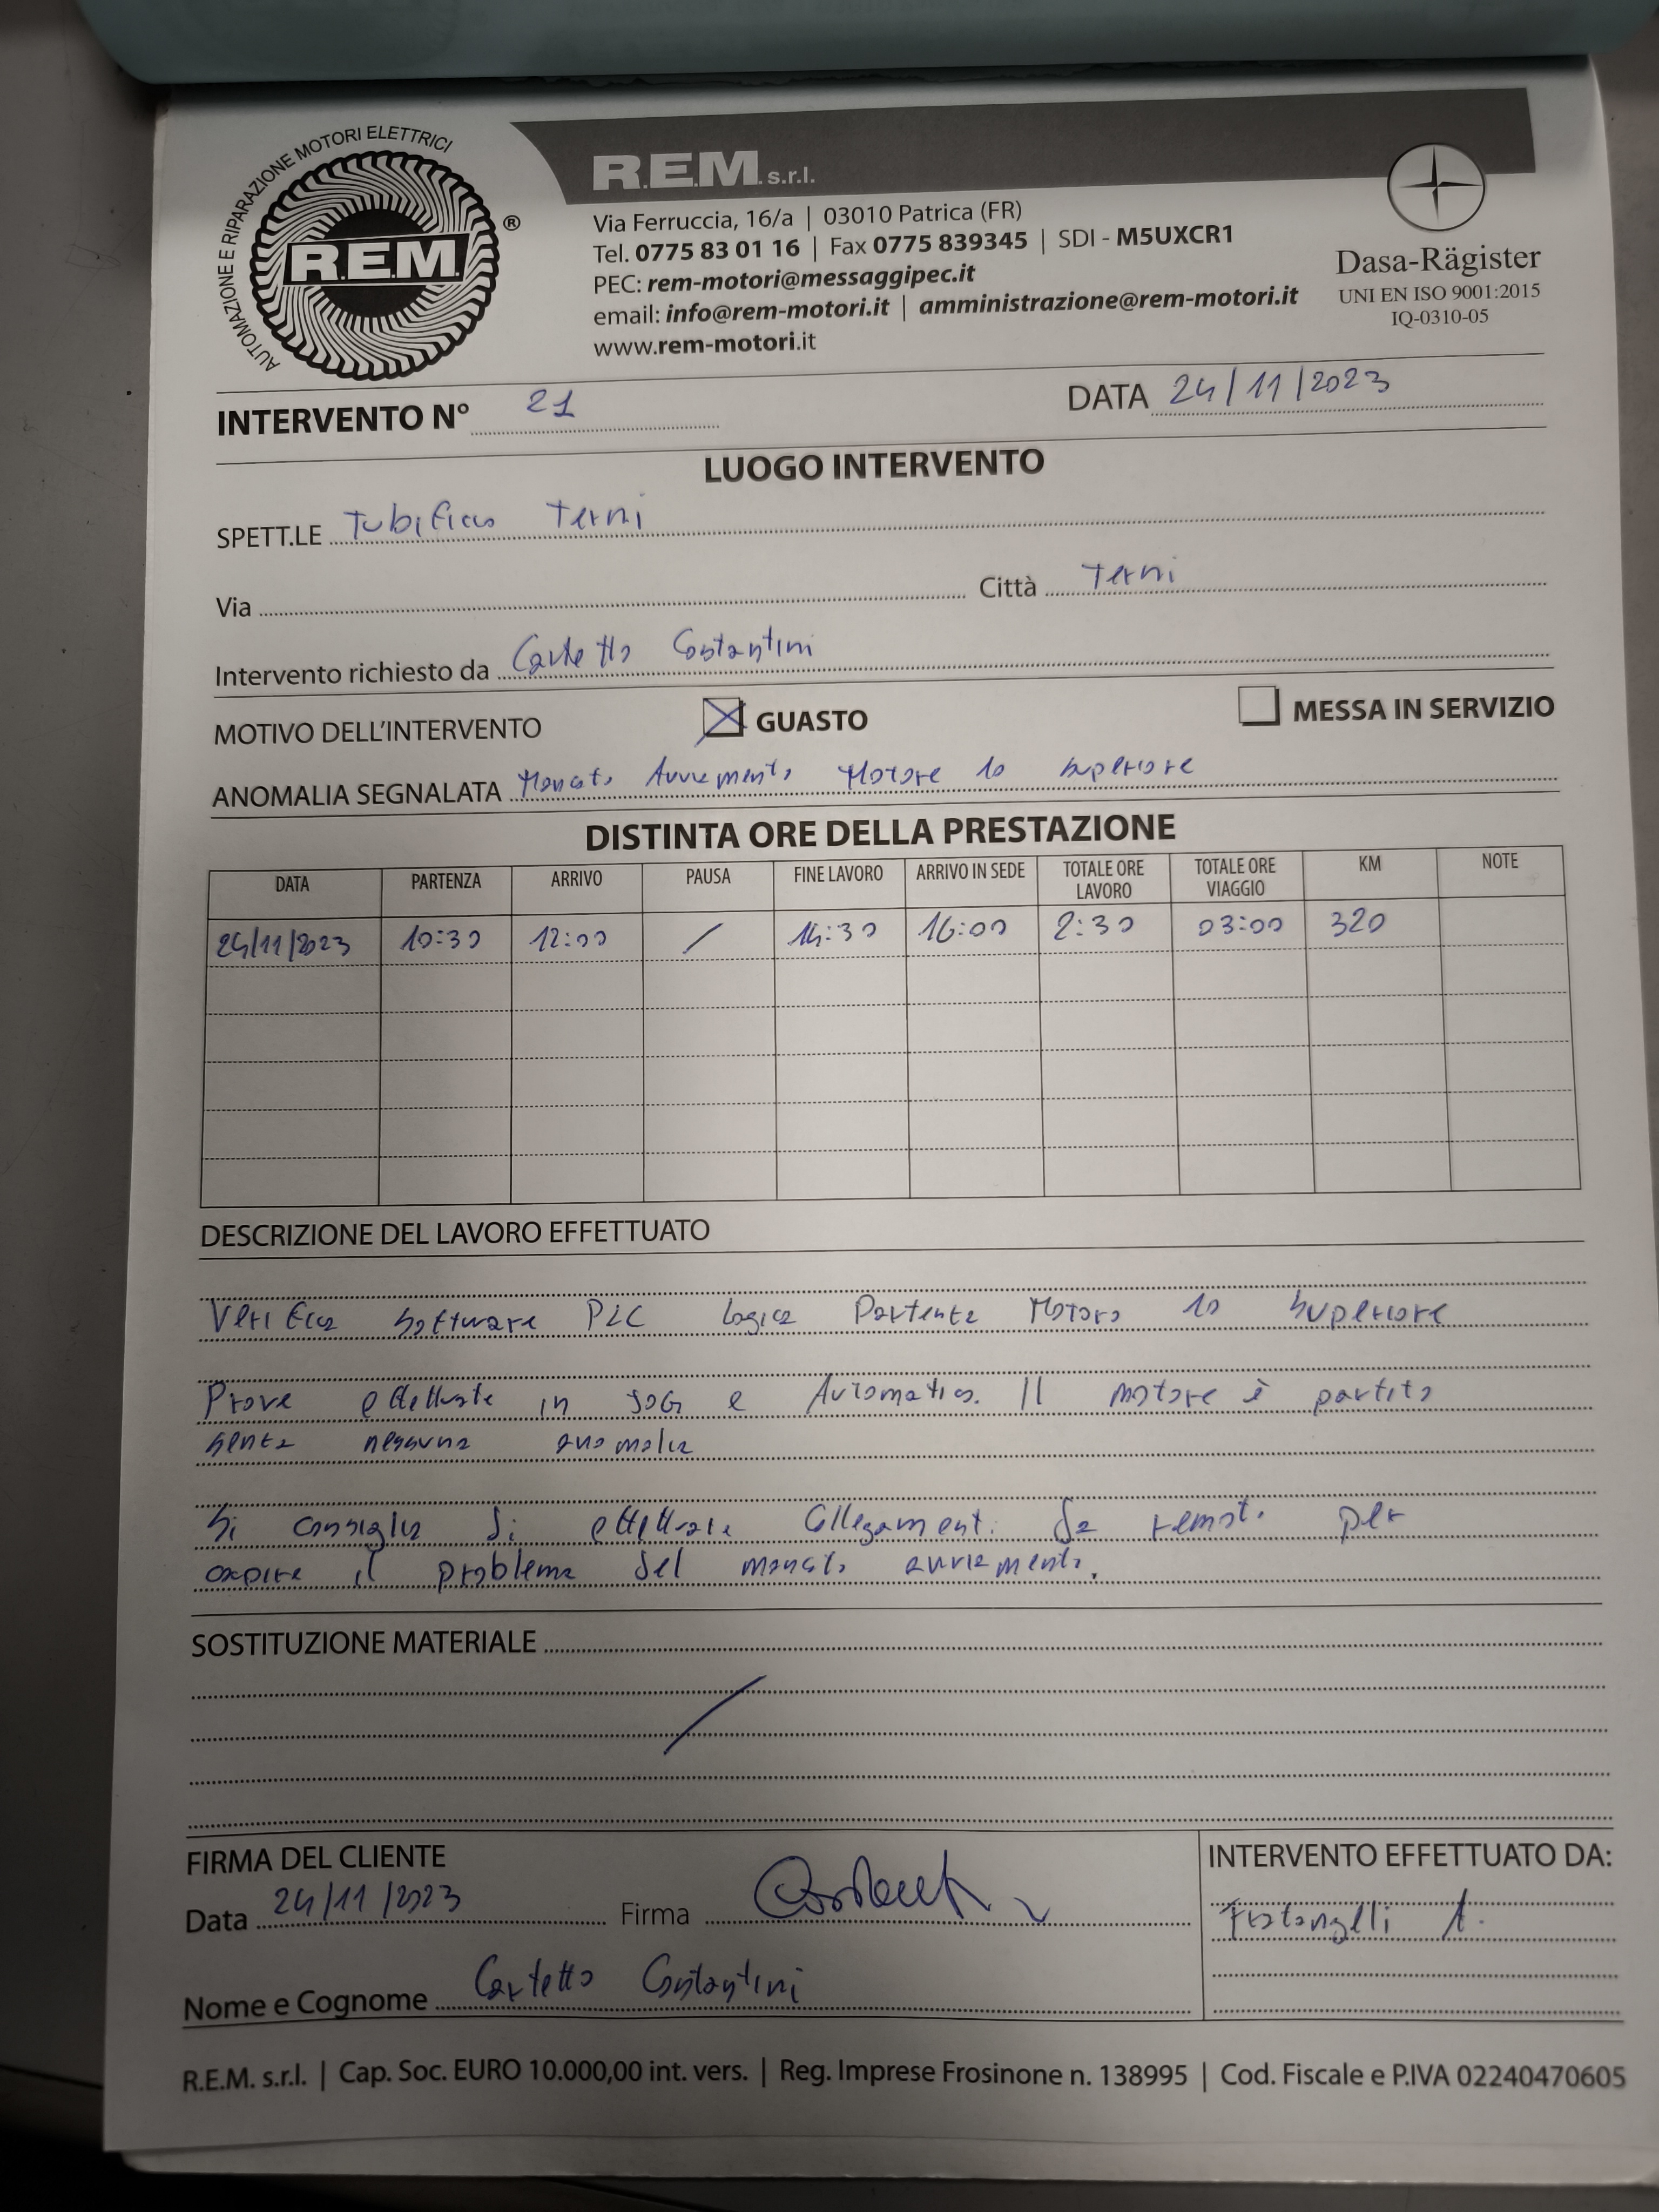 AUTOMAZIONE E RIPARAZIONE MOTORI ELETTRICI
R.E.M. ®
R.E.M. s.r.l.
Via Ferruccia, 16/a | 03010 Patrica (FR)
Tel. 0775 83 01 16 | Fax 0775 839345 | SDI - M5UXCR1
PEC: rem-motori@messaggipec.it
email: info@rem-motori.it | amministrazione@rem-motori.it
www.rem-motori.it
Dasa-Rägister
UNI EN ISO 9001:2015
IQ-0310-05
INTERVENTO N° 21 DATA 24/11/2023
LUOGO INTERVENTO
SPETT.LE Tubificio Terni
Via Città Terni
Intervento richiesto da Carletto Costantini
MOTIVO DELL'INTERVENTO GUASTO MESSA IN SERVIZIO
ANOMALIA SEGNALATA Mancato Avviamento Motore 10 superiore
DISTINTA ORE DELLA PRESTAZIONE
DATA PARTENZA ARRIVO PAUSA FINE LAVORO ARRIVO IN SEDE TOTALE ORE LAVORO TOTALE ORE VIAGGIO KM NOTE
24/11/2023 10:30 12:00 / 14:30 16:00 2:30 03:00 320
DESCRIZIONE DEL LAVORO EFFETTUATO
Verifica Software PLC Logica Partenza Motore 10 Superiore
Prove effettuate in JOG e Automatico. Il motore è partito
senza nessuna anomalia
Si consiglia di effettuare Collegamento da remoto per
capire il problema del mancato avviamento.
SOSTITUZIONE MATERIALE
/
FIRMA DEL CLIENTE
Data 24/11/2023 Firma
Nome e Cognome Carletto Costantini
INTERVENTO EFFETTUATO DA:
R.E.M. s.r.l. | Cap. Soc. EURO 10.000,00 int. vers. | Reg. Imprese Frosinone n. 138995 | Cod. Fiscale e P.IVA 02240470605